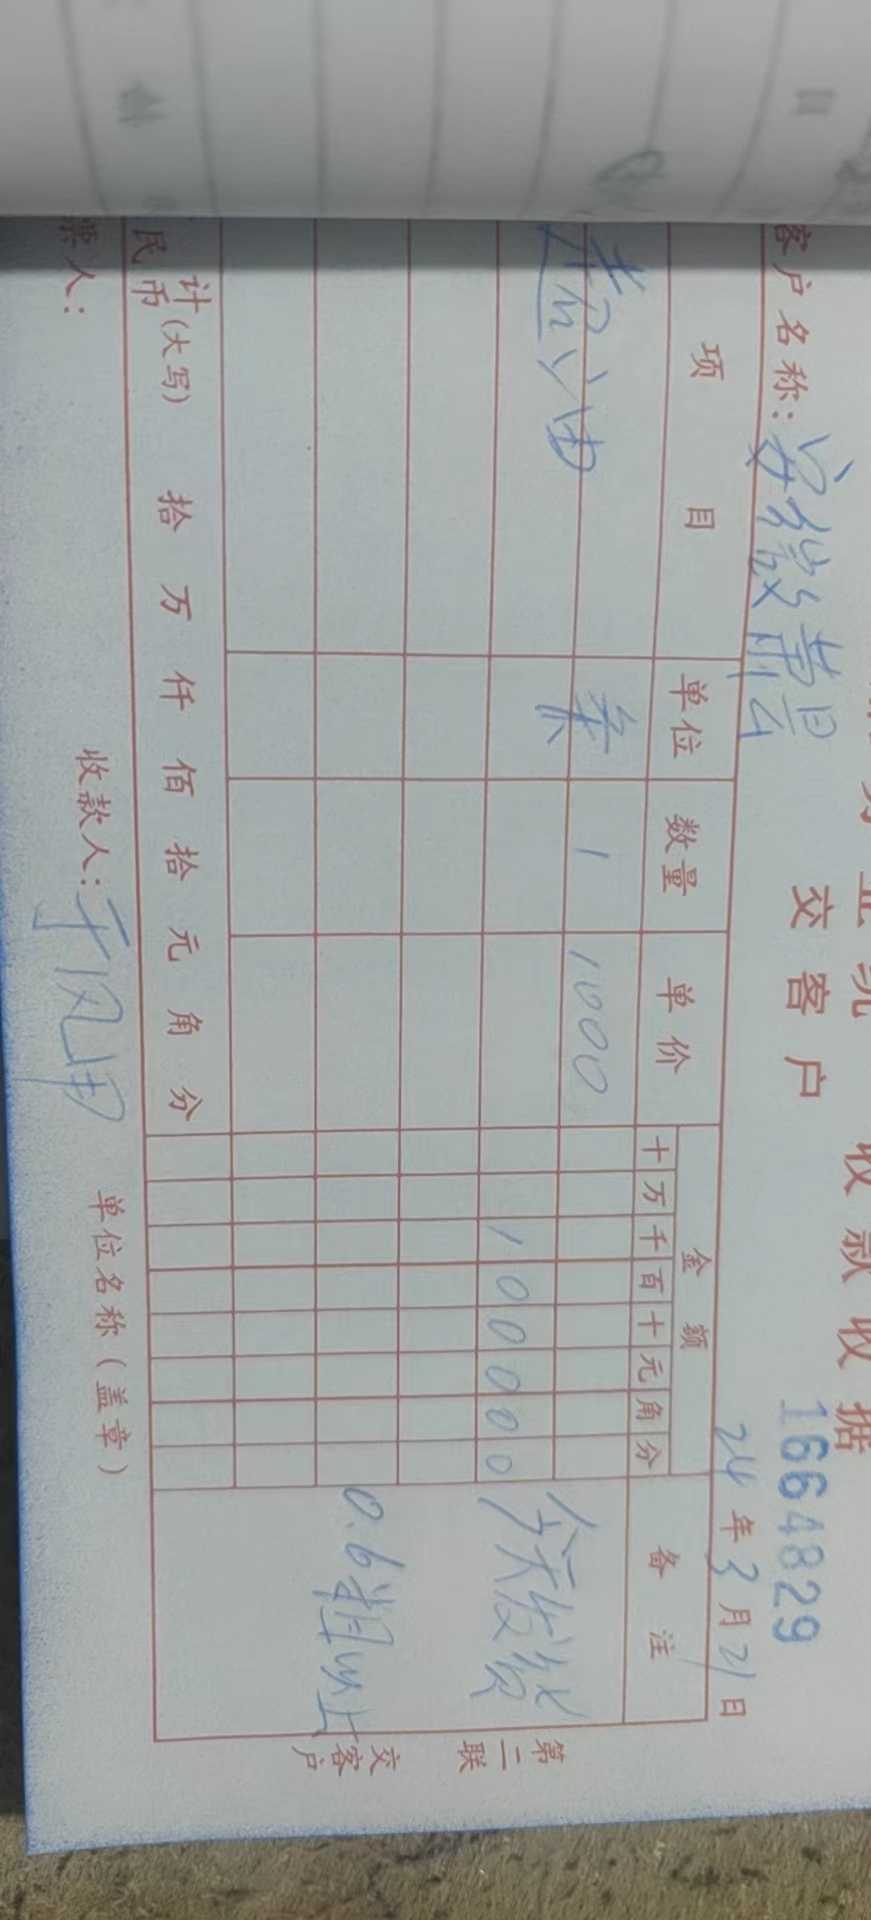 收款收据
交客户
1664829
客户名称: 安徽萧县
24年3月21日
项目 单位 数量 单价 金额 备注
十万千百十元角分
条 1 1000
100000 今天发货
0.6粗以上
计(大写) 拾 万 仟 佰 拾 元 角 分
民币
票人:
收款人:
单位名称(盖章)
第二联 交客户